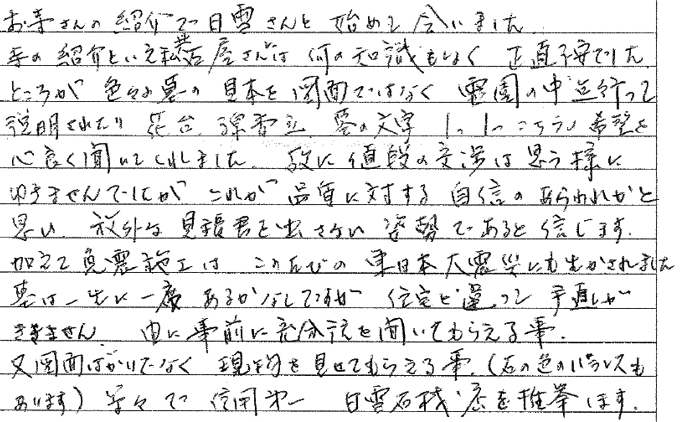 お寺さんの紹介で白雲さんと始めて会いました
寺の紹介といえ私共石屋さんは何の知識もなく正直不安でした。
ところが色々な墓の見本を図面ではなく霊園の中迄行って
説明されたり花台、線香立、墓の文字1つ1つこちらの希望を
心良く聞いてくれました。故に値段の交渉は思う様に
ゆきませんでしたがこれが品質に対する自信のあらわれかと
思い、放外な見積書を出さない姿勢であると信じます。
加えて免震施工はこのたびの東日本大震災にも生かされました
墓は一生に一度あるかなしですが住宅と違って手直しが
ききません。由に事前に充分話を聞いてもらえる事。
又図面ばかりでなく現物を見せてもらえる事。(石の色のバランスも
あります)等々で信用第一白雲石材店を推挙します。